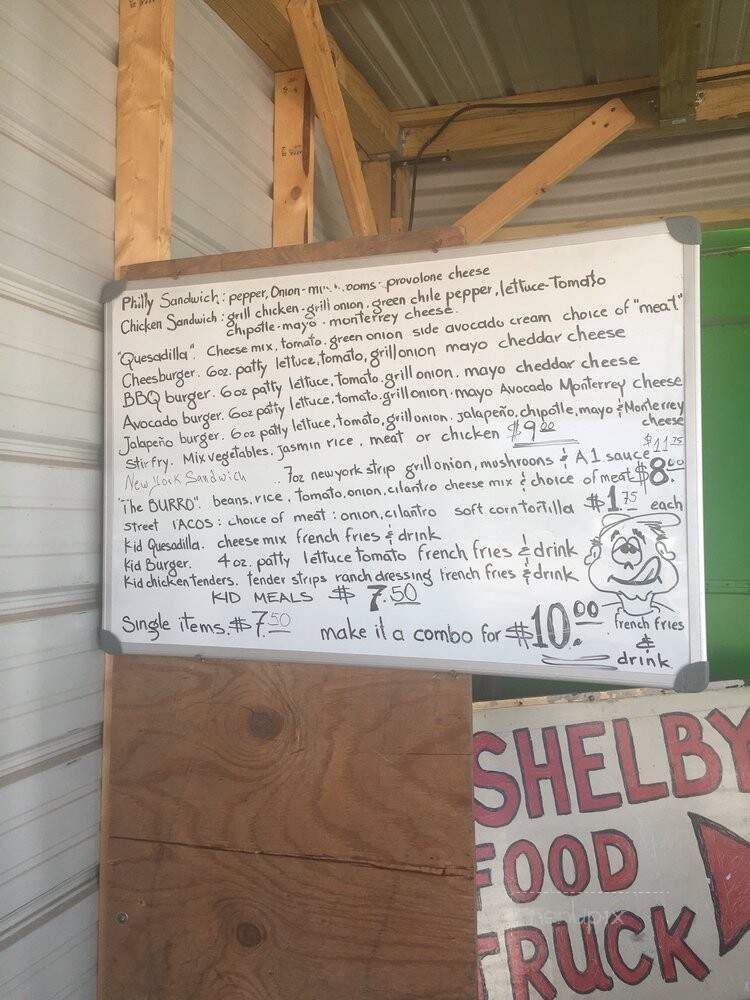 Philly Sandwich: pepper, Onion-m rooms. provolone cheese
Chicken Sandwich: grill chicken-grill onion. green chile pepper. lettuce-Tomato
chipotle-mayo. monterrey cheese.
"Quesadilla". Cheese mix, tomato. green onion side avocado cream choice of "meat"
Cheesburger. 6oz. patty lettuce, tomato, grill onion mayo cheddar cheese
BBQ burger. 6oz patty lettuce, Tomato. grill onion. mayo cheddar cheese
Avocado burger. 6oz patty lettuce, tomato. grill onion. mayo Avocado Monterrey cheese
Jalapeño burger. 6oz patty lettuce, tomato, grill onion. jalapeño, chipotle, mayo & Monterrey cheese
Stir fry. Mix vegetables. jasmin rice. meat or chicken $9.00
New York Sandwich .. 7oz newyork strip grill onion, mushroons & A1 sauce $11.75
"The BURRO". beans, rice, tomato, onion, cilantro cheese mix & choice of meat $8.00
street TACOS: choice of meat: onion, cilantro soft corn tortilla $1.75 each
Kid Quesadilla. cheese mix french fries & drink
Kid Burger. 4oz. patty lettuce tomato french fries & drink
Kid chicken tenders. tender strips ranch dressing french fries & drink
KID MEALS $7.50
Single items. $7.50 make it a combo for $10.00 french fries
&
drink
SHELBY
FOOD
TRUCK
menupix